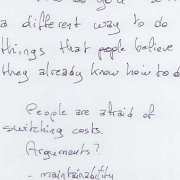 a different way to do
things that people believe
they already know how to do
People are afraid of
switching costs.
Arguments?
- maintainability